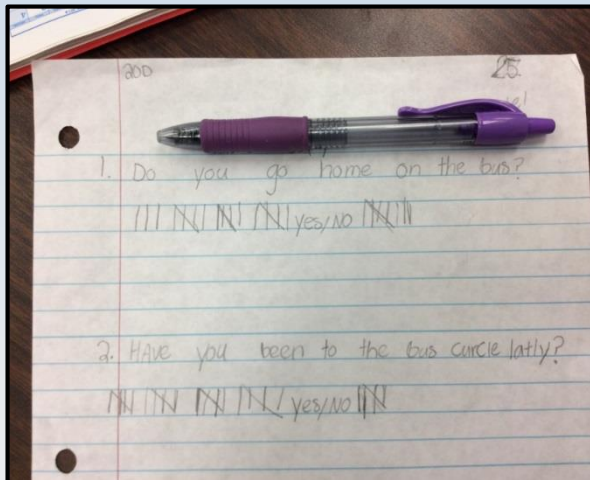 200 25.
1. Do you go home on the bus?
yes/No
2. HAve you been to the bus curcle latly?
yes/No